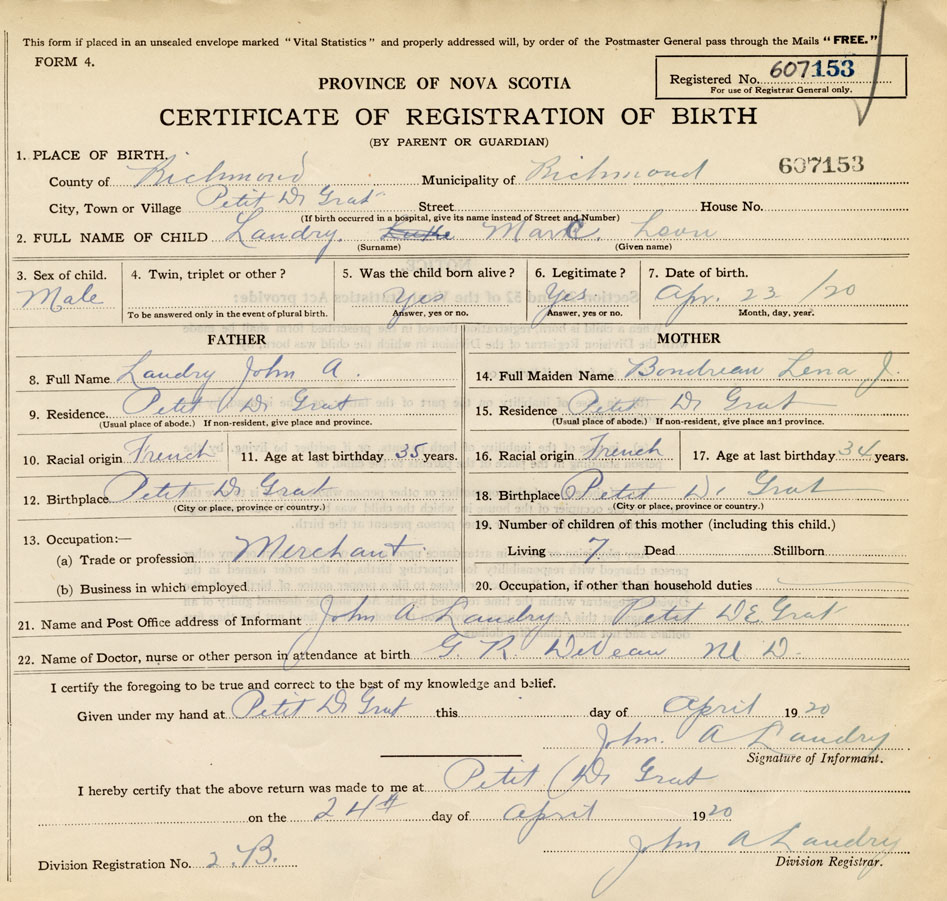 This form if placed in an unsealed envelope marked "Vital Statistics" and properly addressed will, by order of the Postmaster General pass through the Mails "FREE."
FORM 4.
Registered No. 607153
For use of Registrar General only.
PROVINCE OF NOVA SCOTIA
CERTIFICATE OF REGISTRATION OF BIRTH
(BY PARENT OR GUARDIAN)
607153
1. PLACE OF BIRTH.
County of Richmond Municipality of Richmond
City, Town or Village Petit De Grat Street House No.
(If birth occurred in a hospital, give its name instead of Street and Number)
2. FULL NAME OF CHILD Landry. Marc. Leon
(Surname) (Given name)
3. Sex of child. 4. Twin, triplet or other? 5. Was the child born alive? 6. Legitimate? 7. Date of birth.
Male Yes Yes Apr. 23 /20
To be answered only in the event of plural birth. Answer, yes or no. Answer, yes or no. Month, day, year.
FATHER
8. Full Name Landry John A.
9. Residence. Petit De Grat
(Usual place of abode.) If non-resident, give place and province.
10. Racial origin French 11. Age at last birthday 35 years.
12. Birthplace Petit De Grat
(City or place, province or country.)
13. Occupation:—
(a) Trade or profession Merchant
(b) Business in which employed
MOTHER
14. Full Maiden Name Boudreau Lena J.
15. Residence Petit De Grat
(Usual place of abode.) If non-resident, give place and province.
16. Racial origin French 17. Age at last birthday 34 years.
18. Birthplace Petit De Grat
(City or place, province or country.)
19. Number of children of this mother (including this child.)
Living 7 Dead Stillborn
20. Occupation, if other than household duties
21. Name and Post Office address of Informant John A Landry Petit DE Grat
22. Name of Doctor, nurse or other person in attendance at birth G. R. DeVeau M D.
I certify the foregoing to be true and correct to the best of my knowledge and belief.
Given under my hand at Petit De Grat this day of April 1920
John. A Landry
Signature of Informant.
I hereby certify that the above return was made to me at Petit De Grat
on the 24th day of April 1920
John A Landry
Division Registration No. 2.B. Division Registrar.